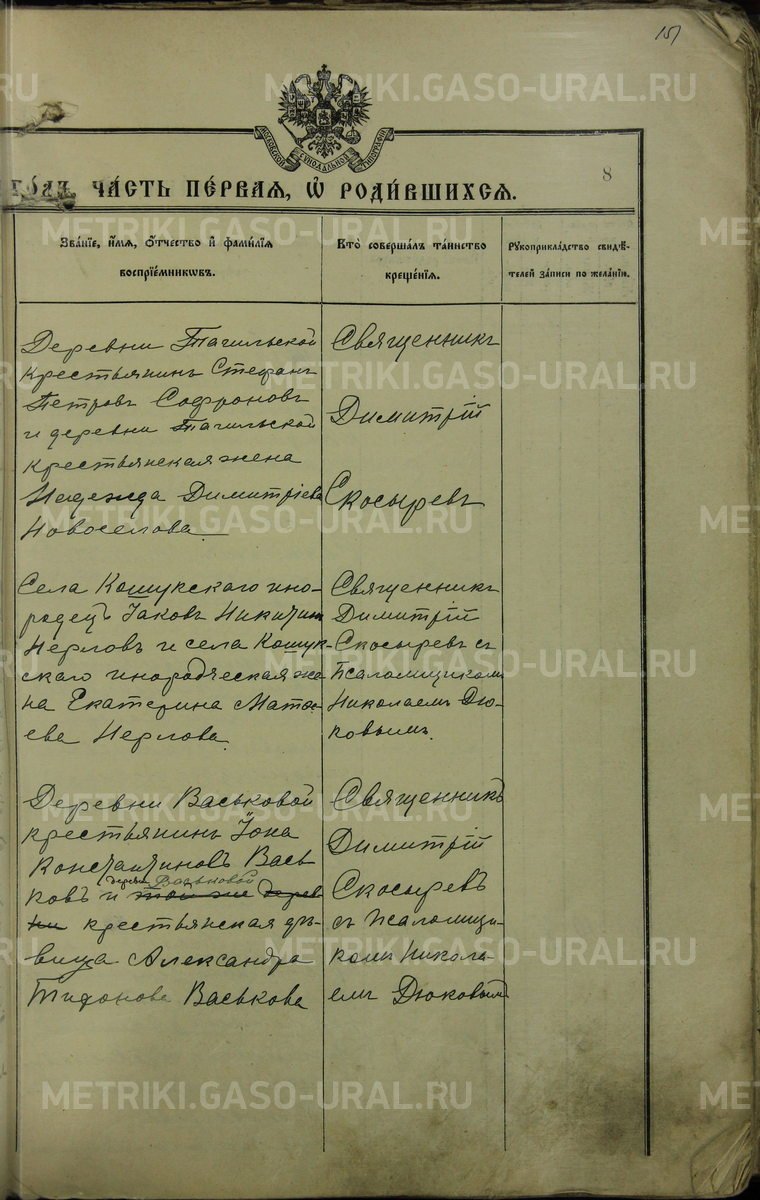 151
МОСКОВСКОЙ СѴНОДАЛЬНОЙ ТИПОГРАФІИ
8
ГО́ДЪ, ЧА́СТЬ ПЕ́РВАЯ, Ѡ҆ РОДИ́ВШИХСЯ.
Зва́нїе, и҆́мѧ, ѻ҆́тчество и҆ фами́лїѧ
воспрїе́мникѡвъ.
Кто̀ соверша́лъ та́инство
креще́нїѧ.
Рꙋкоприкла́дство свидѣ́-
телей за́писи по жела́нїю.
Деревни Тагильской
крестьянинъ Стефанъ
Петровъ Софроновъ
и деревни Тагильской
крестьянская жена
Надежда Димитріева
Новоселова
Священникъ
Димитрій
Скосыревъ
Села Кошукскаго ино-
родецъ Іаковъ Никитинъ
Нерловъ и села Кошук-
скаго инородческая же
на Екатерина Матѳ-
ева Нерлова.
Священникъ
Димитрій
Скосыревъ съ
Псаломщикомъ
Николаемъ Дю-
ковымъ.
Деревни Васьковой
крестьянинъ Іона
Константиновъ Вась
деревни Васьковой
ковъ и той же дерев
ни крестьянская дѣ-
вица Александра
Васькова
Священникъ
Димитрій
Скосыревъ
съ Псаломщи-
комъ Никола
емъ Дюковымъ
METRIKI.GASO-URAL.RU